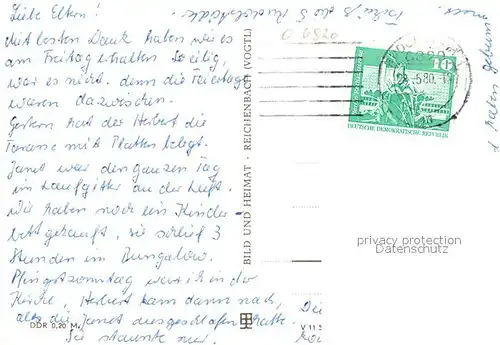 Liebe Eltern!
Mit besten Dank haben wir es
am Freitag erhalten. So eilig,
war es nicht. denn die Feiertage
waren dazwischen.
Gestern hat der Herbert die
Terasse mit Platten belegt.
Janet war den ganzen Tag
im Laufgitter an der Luft.
Wir haben noch ein Kinder-
bett gekauft, sie schlief 3
Stunden im Bungalow.
Pfingstsonntag war ich in der
Kirche, Herbert kam dann nach,
als die Janet ausgeschlafen hatte.
Sie staunte nur
DDR 0,20 M
BILD UND HEIMAT · REICHENBACH (VOGTL)
V 11
O 6820
10
DEUTSCHE DEMOKRATISCHE REPUBLIK
5.80
haben
privacy protection
Datenschutz
Die